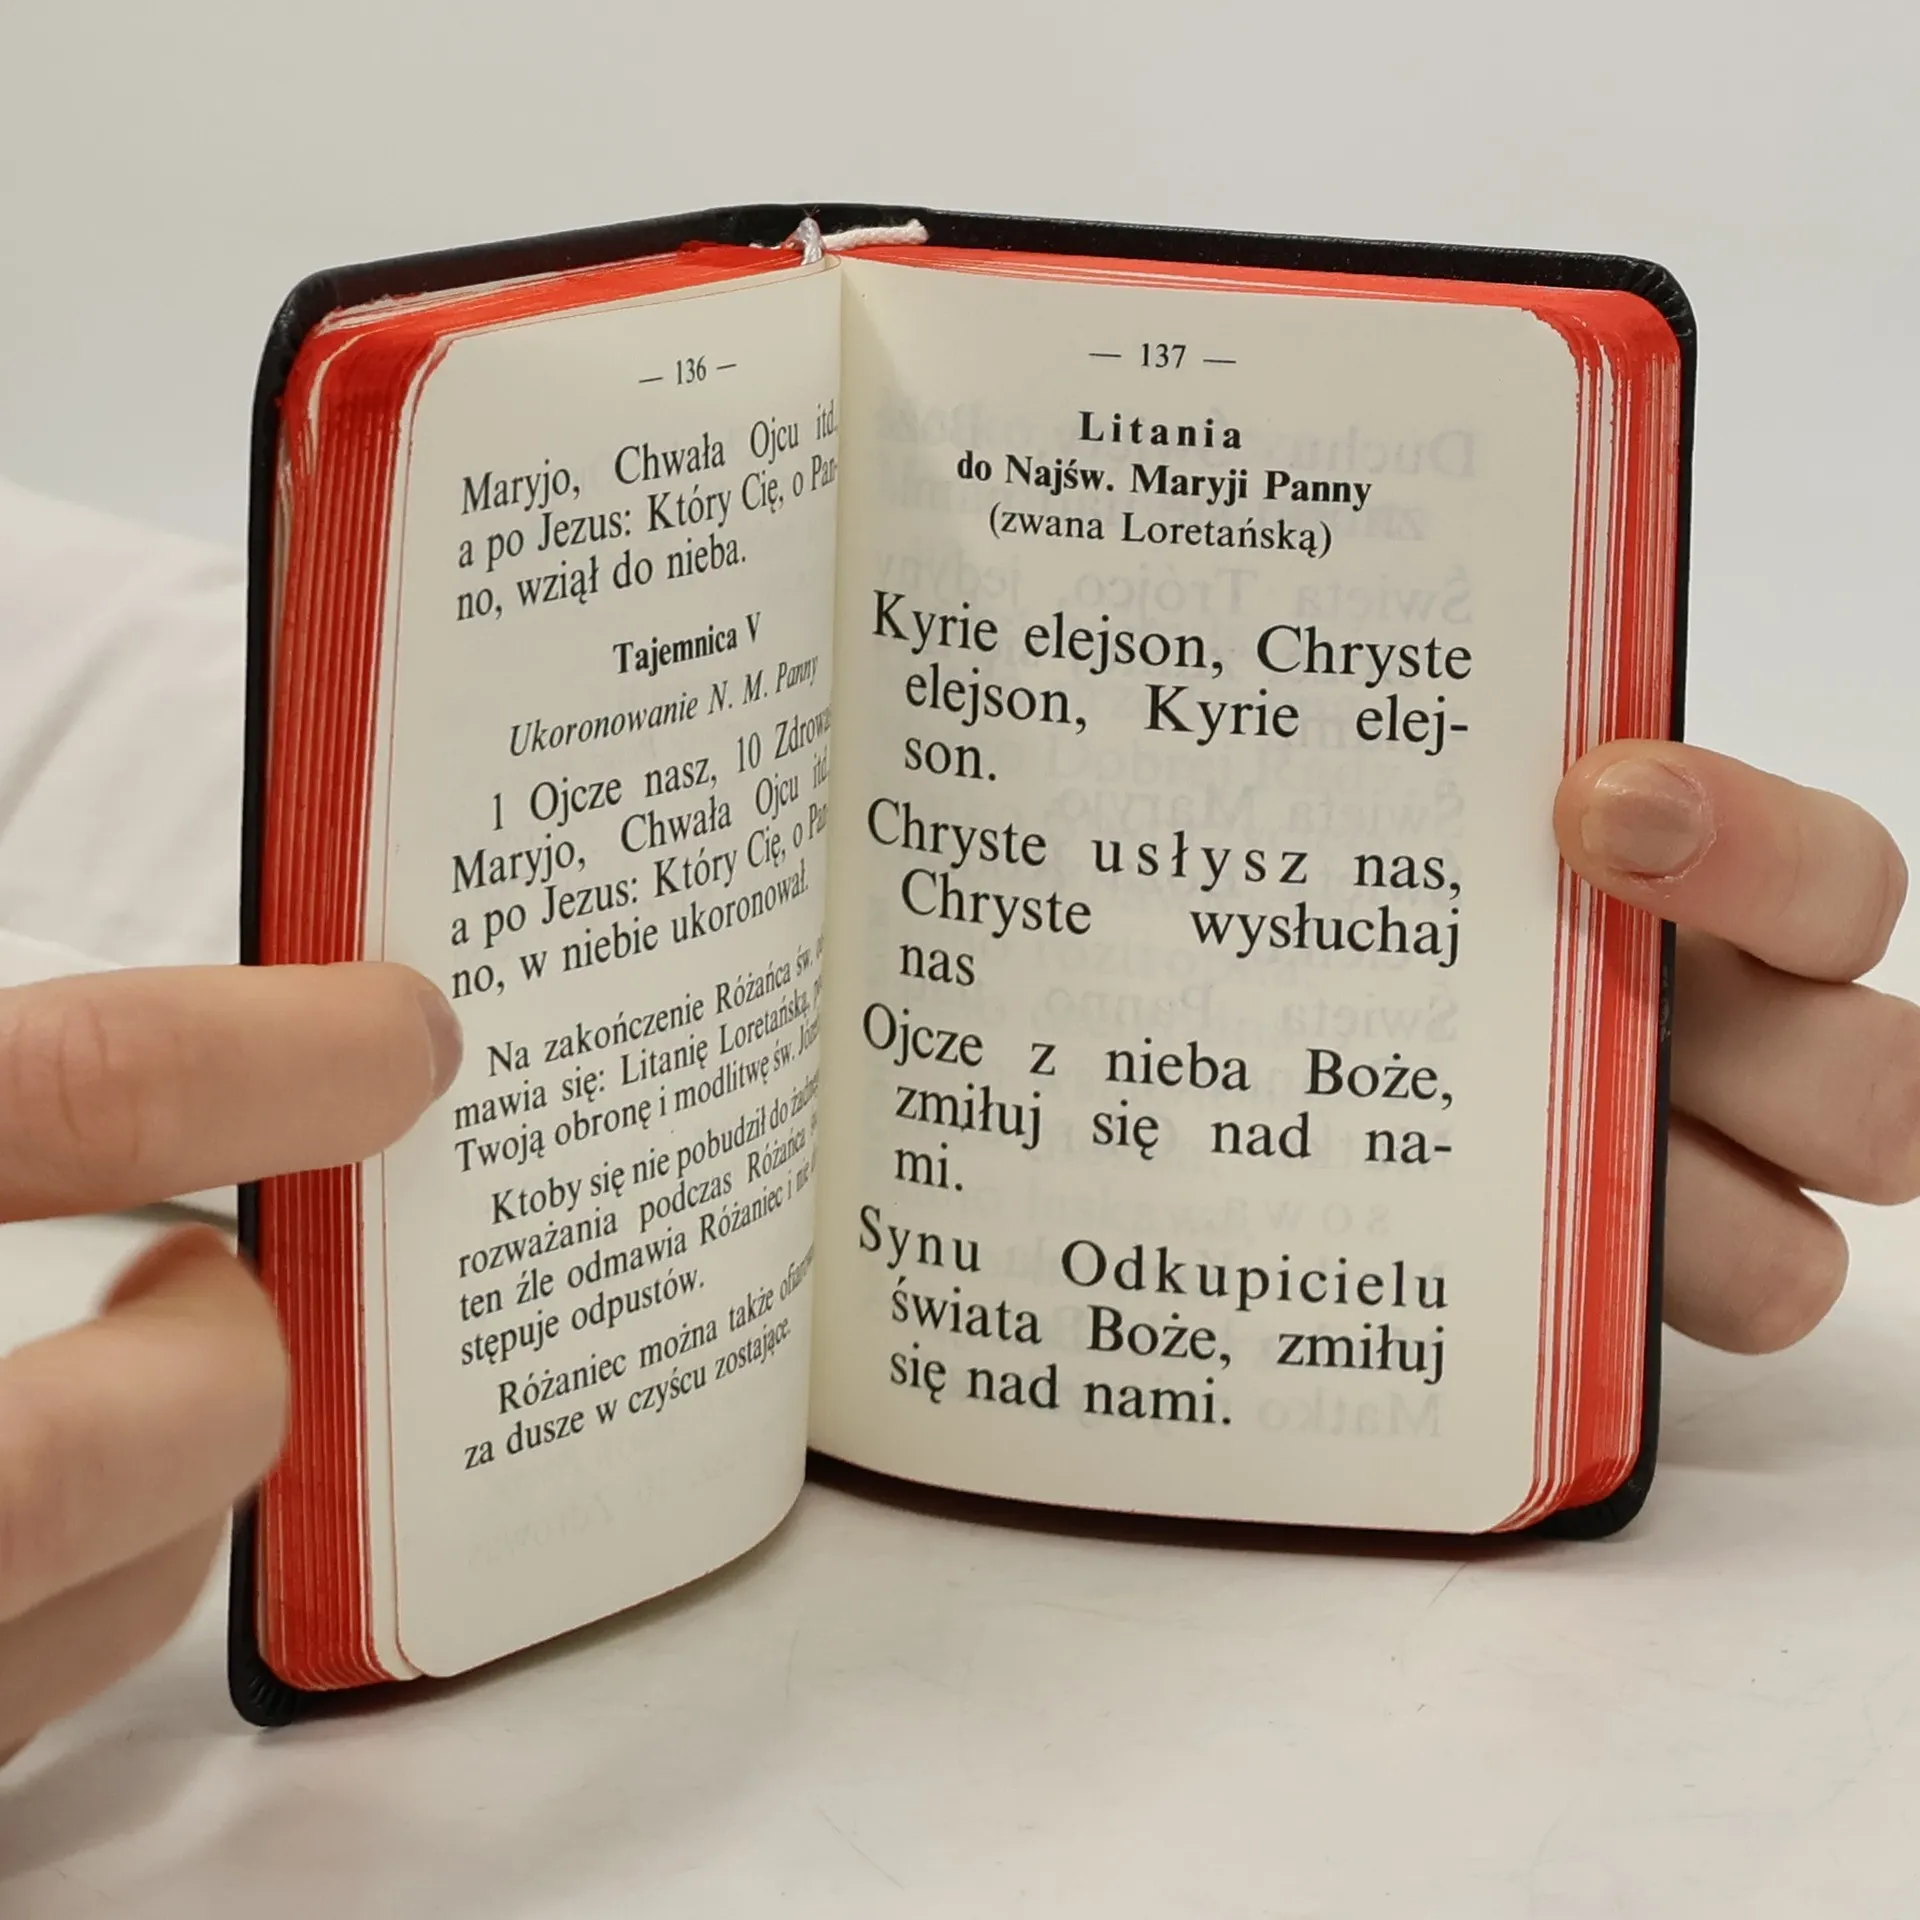 — 136 —
Maryjo, Chwała Ojcu itd.
a po Jezus: Który Cię, o Pan-
no, wziął do nieba.
Tajemnica V
Ukoronowanie N. M. Panny
1 Ojcze nasz, 10 Zdrowaś
Maryjo, Chwała Ojcu itd.
a po Jezus: Który Cię, o Pan-
no, w niebie ukoronował.
Na zakończenie Różańca św.
mawia się: Litanię Loretańską,
Twoją obronę i modlitwę św.
Ktoby się nie pobudził do
rozważania podczas Różańca
ten źle odmawia Różaniec i nie
stępuje odpustów.
Różaniec można także
za dusze w czyścu zostające.
— 137 —
Litania
do Najśw. Maryji Panny
(zwana Loretańską)
Kyrie elejson, Chryste
elejson, Kyrie elej-
son.
Chryste usłysz nas,
Chryste wysłuchaj
nas
Ojcze z nieba Boże,
zmiłuj się nad na-
mi.
Synu Odkupicielu
świata Boże, zmiłuj
się nad nami.